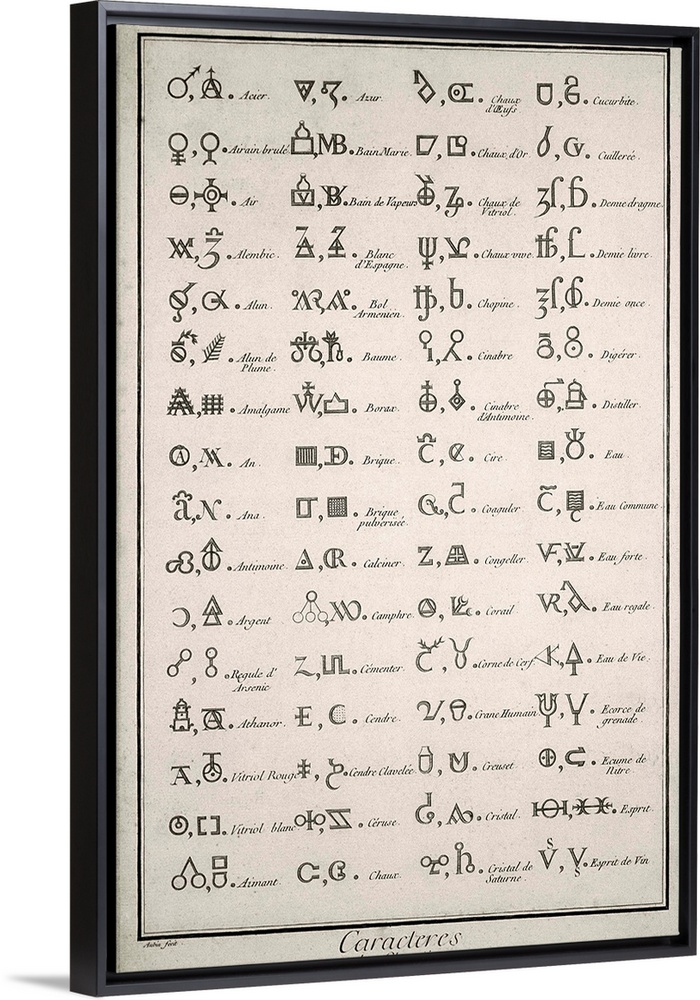 Acier. Azur. Chaux d'Œufs Cucurbite.
Airain brulé MB Bain Marie. Chaux d'Or. Cuillerée.
Air Bain de Vapeurs Chaux de Vitriol. Demie dragme.
Alembic. Blanc d'Espagne. Chaux vive. Demie livre.
Alun. Bol Armenien. Chopine. Demie once.
Alun de Plume. Baume. Cinabre Digérer.
Amalgame Borax. Cinabre d'Antimoine. Distiller.
An. Brique. Cire. Eau.
Ana. Brique pulverisée. Coaguler Eau Commune.
Antimoine. Calciner. Congeller Eau forte.
Argent Camphre. Corail Eau regale.
Regule d'Arsenic Cémenter. Corne de Cerf. Eau de Vie.
Athanor. Cendre. Crane Humain Ecorce de grenade.
Vitriol Rouge Cendre Clavelée. Creuset Ecume de Nitre.
Vitriol blanc Céruse. Cristal. Esprit.
Aimant. Chaux. Cristal de Saturne. Esprit de Vin
Aubin fecit.
Caracteres